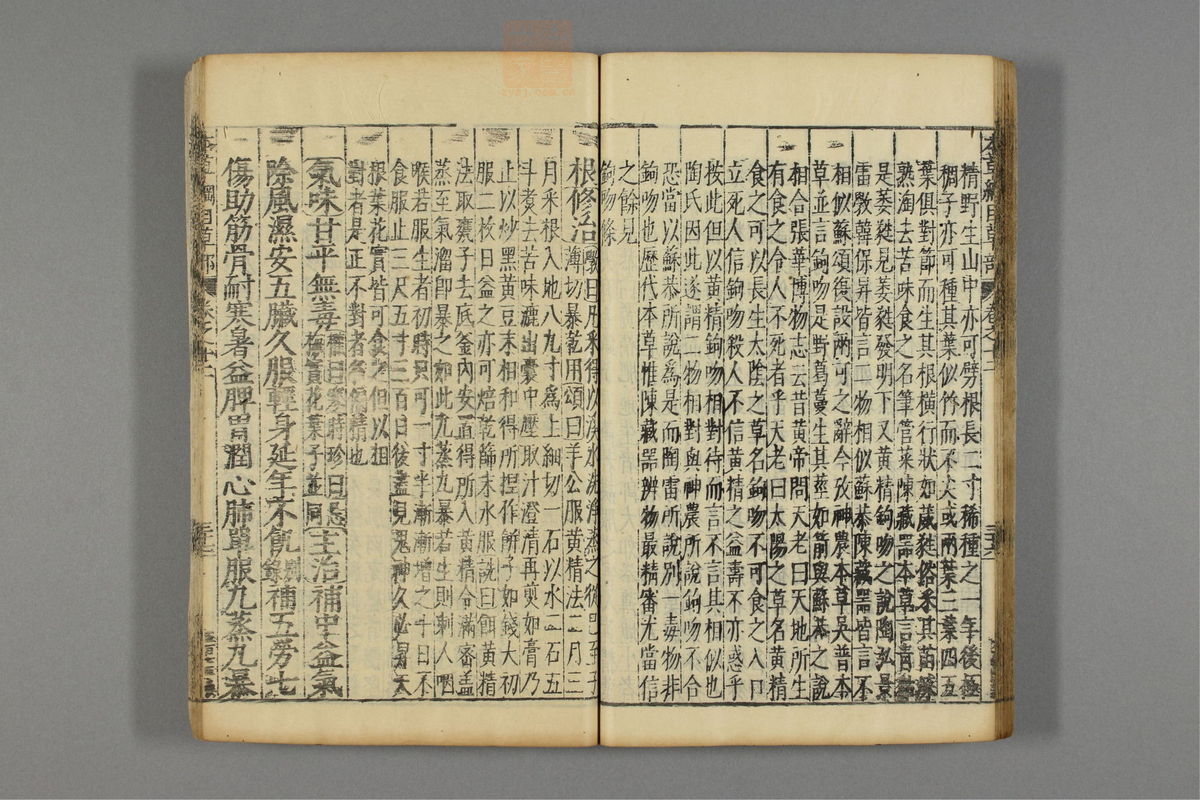 精野生山中亦可劈根長二寸稀種之一年後極
稠子亦可種其葉似竹而不尖或兩葉三葉四五
葉俱對節而生其根橫行狀如萎蕤俗采其苗煠
熟淘去苦味食之名筆管菜陳藏器本草言青黏
是萎蕤見萎蕤發明下又黃精鉤吻之說陶弘景
雷斅韓保昇皆言二物相似蘇恭陳藏器皆言不
相似蘇頌復設兩可之辭今攷神農本草吳普本
草並言鉤吻是野葛蔓生其莖如箭與蘇恭之說
相合張華博物志云昔黃帝問天老曰天地所生
有食之令人不死者乎天老曰太陽之草名黃精
食之可以長生太陰之草名鉤吻不可食之入口
立死人信鉤吻殺人不信黃精之益壽不亦惑乎
按此但以黃精鉤吻相對待而言不言其相似也
陶氏因此遂謂二物相對與神農所說鉤吻不合
恐當以蘇恭所說為是而陶雷所說別一毒物非
鉤吻也歷代本草惟陳藏器辨物最精審尤當信
之餘見
鉤吻條
根修治斅曰凡采得以溪水洗淨蒸之從巳至子
薄切暴乾用頌曰羊公服黃精法二月三
月采根入地八九寸為上細切一石以水二石五
斗煮去苦味漉出囊中壓取汁澄清再煎如膏乃
止以炒黑黃豆末相和得所捏作餅子如錢大初
服二枚日益之亦可焙乾篩末水服說曰餌黃精
法取甕子去底釜內安置得所入黃精令滿密蓋
蒸至氣溜即暴之如此九蒸九暴若生則刺人咽
喉若服生者初時只可一寸半漸漸增之十日不
食服止三尺五寸三百日後盡見鬼神久必昇天
根葉花實皆可食之但以相
對者是正不對者名偏精也
氣味甘平無毒權曰寒時珍曰忌
梅實花葉子並同主治補中益氣
除風濕安五臟久服輕身延年不飢別錄補五勞七
傷助筋骨耐寒暑益脾胃潤心肺單服九蒸九暴